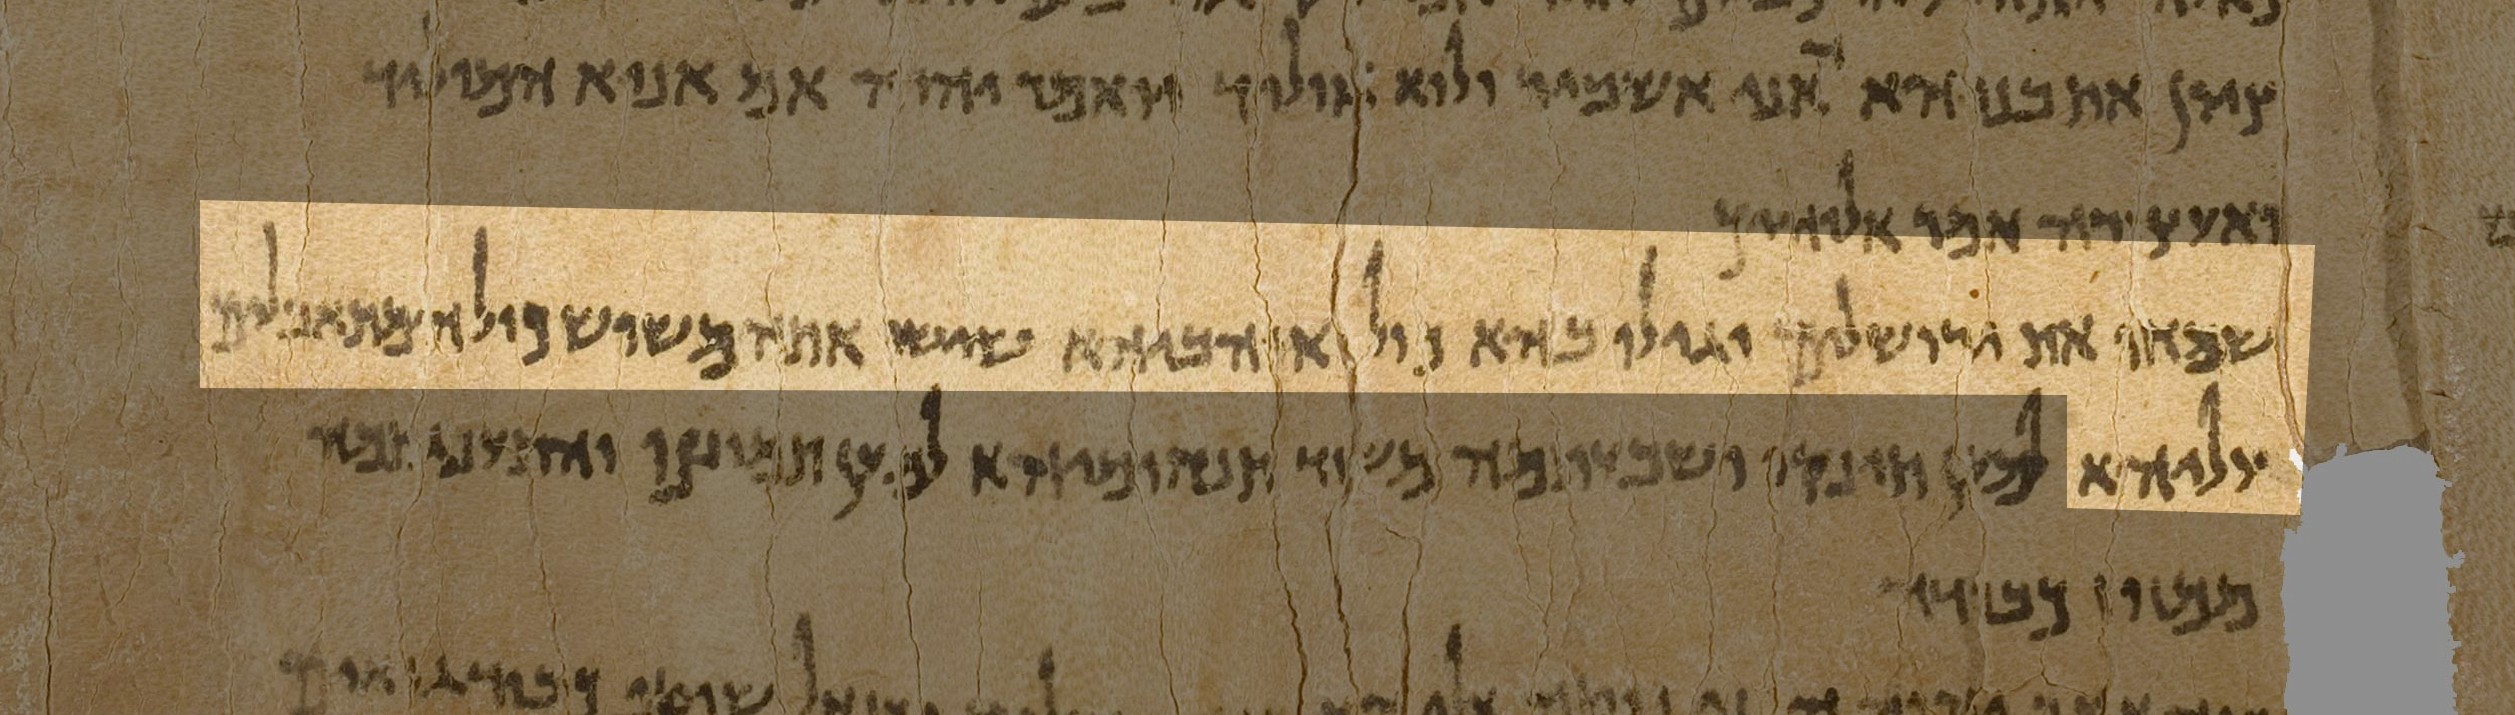 ציון את בניהא האני אשביר ולוא אוליד יואמר יהוה אם אניא המוליד
ואעצורה אמר אלוהיך
שמחו את ירושלים וגולו בהא כול אוהביהא שישו אתה משוש כול המתאבלים
עליהא למען תינקו ושבעתמה משוד תנחומיהא למען תמוצו והתענגתמה
ממזוז כבודה